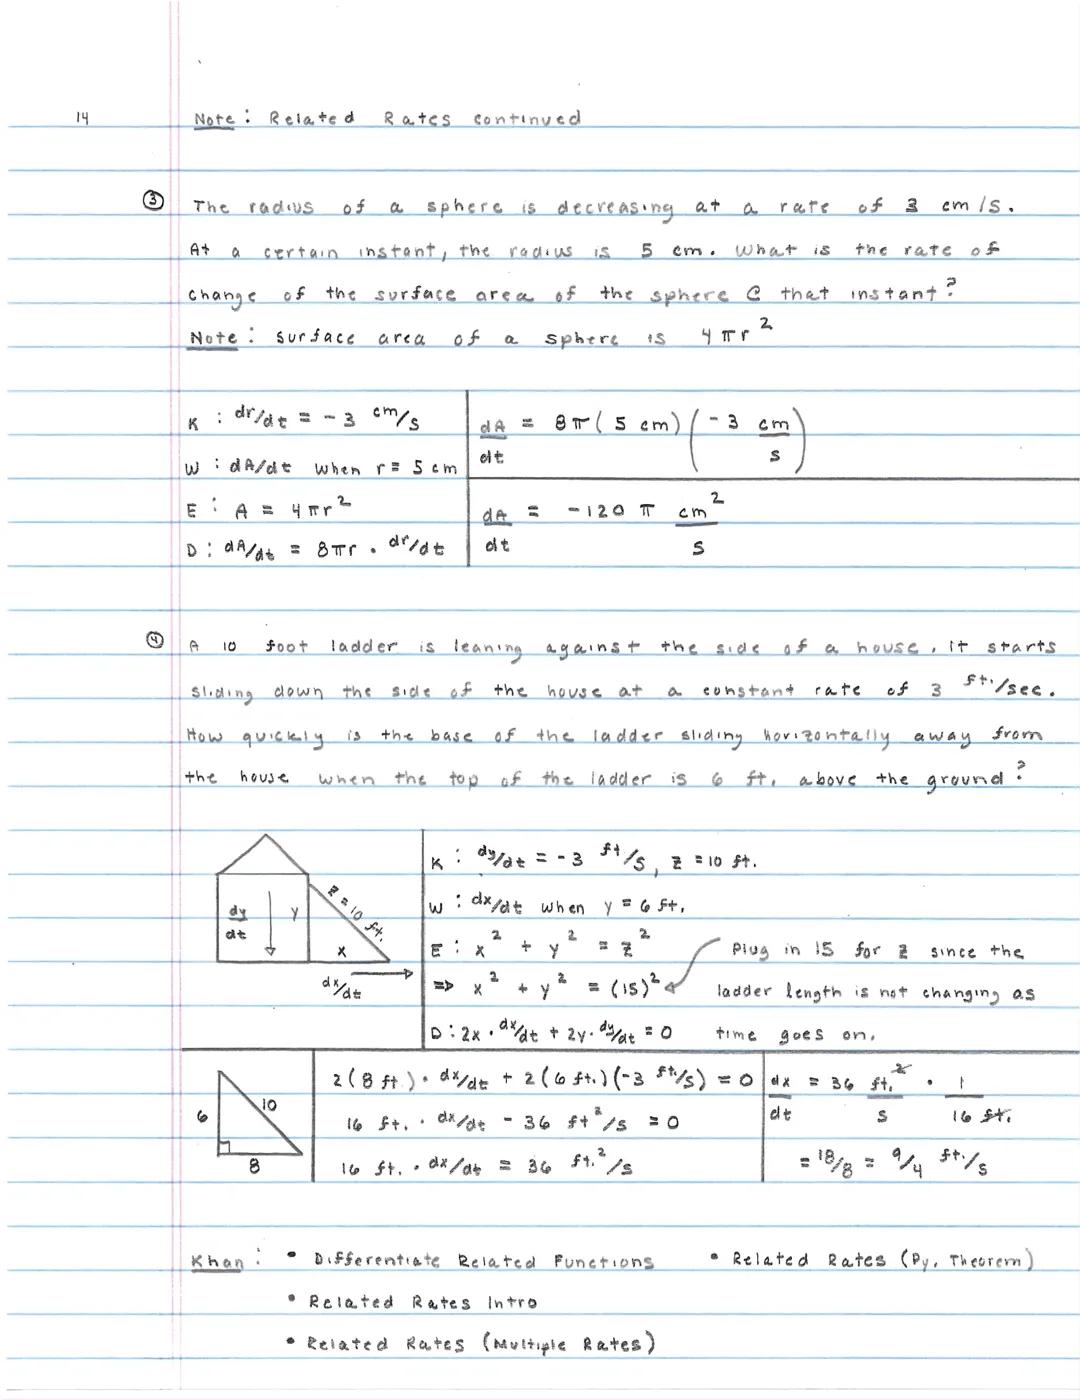 14 Note: Related Rates continued
③ The radius of a sphere is decreasing at a rate of 3 cm/s.
At a certain instant, the radius is 5 cm. What is the rate of
change of the surface area of the sphere @ that instant?
Note: Surface area of a sphere is 4πr²
K: dr/dt = -3 cm/s
W: dA/dt when r = 5 cm
E: A = 4πr²
D: dA/dt = 8πr · dr/dt
dA/dt = 8π(5 cm)(-3 cm/s)
dA/dt = -120π cm²/s
④ A 10 foot ladder is leaning against the side of a house, it starts
sliding down the side of the house at a constant rate of 3 ft./sec.
How quickly is the base of the ladder sliding horizontally away from
the house when the top of the ladder is 6 ft. above the ground?
dy/dt y z = 10 ft.
x
dx/dt
K: dy/dt = -3 ft/s, z = 10 ft.
W: dx/dt when y = 6 ft.
E: x² + y² = z²
=> x² + y² = (15)²
D: 2x · dx/dt + 2y · dy/dt = 0
Plug in 15 for z since the
ladder length is not changing as
time goes on.
6 10
8
2(8 ft.) · dx/dt + 2(6 ft.)(-3 ft./s) = 0
16 ft. · dx/dt - 36 ft²/s = 0
16 ft. · dx/dt = 36 ft.²/s
dx/dt = 36 ft.²/s · 1/16 ft.
= 18/8 = 9/4 ft./s
Khan: • Differentiate Related Functions • Related Rates (Py. Theorem)
• Related Rates Intro
• Related Rates (Multiple Rates)